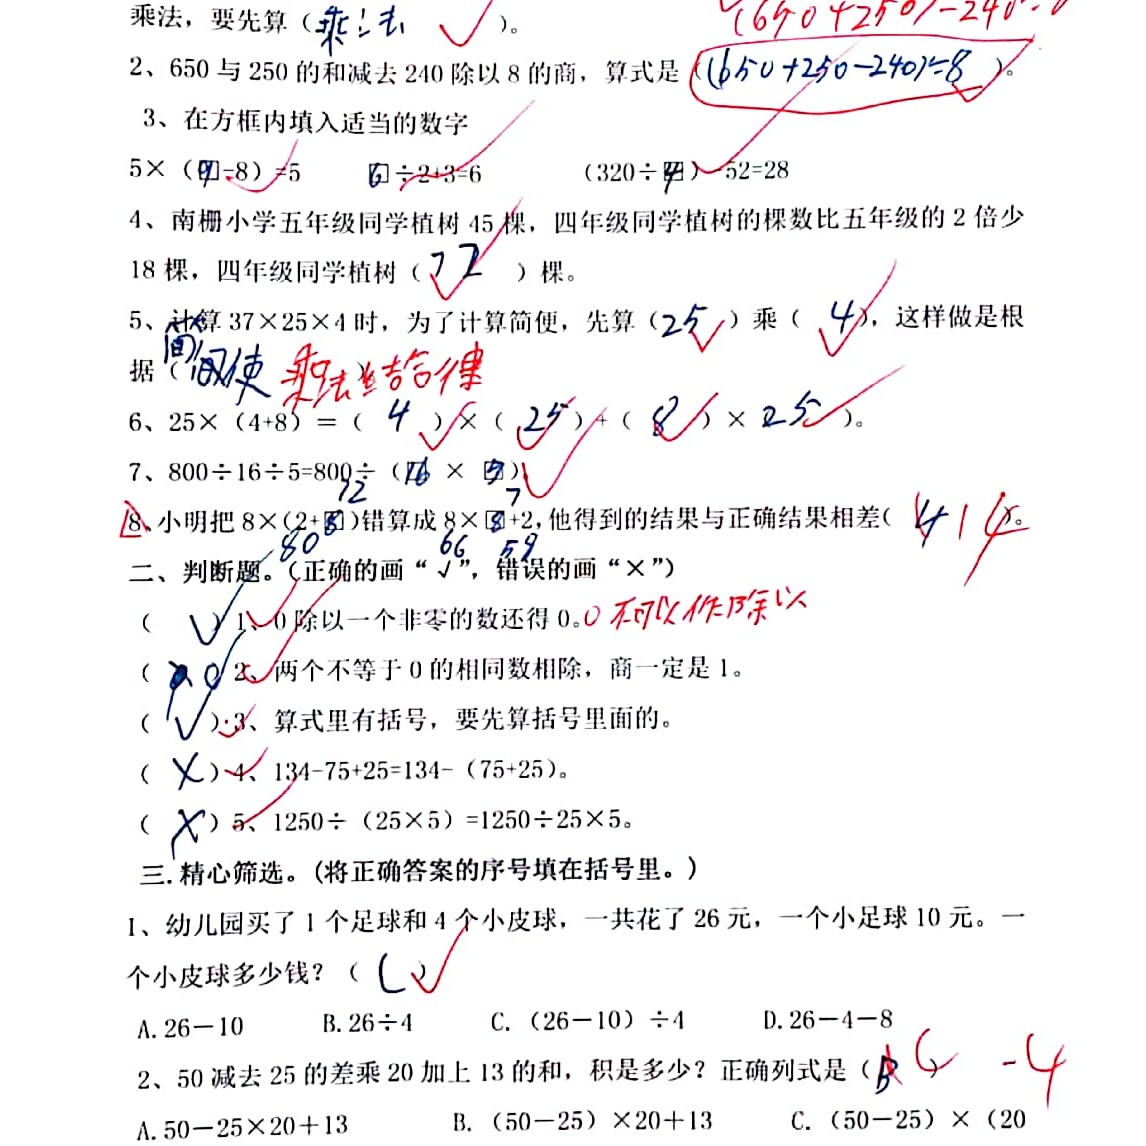 乘法，要先算（乘法）。
(650+250)-240÷8
2、650 与 250 的和减去 240 除以 8 的商，算式是（(650+250-240)÷8）。
3、在方框内填入适当的数字
5×（9-8）=5 6÷2+3=6 （320÷4）-52=28
4、南栅小学五年级同学植树 45 棵，四年级同学植树的棵数比五年级的 2 倍少
18 棵，四年级同学植树（72）棵。
5、计算 37×25×4 时，为了计算简便，先算（25）乘（4），这样做是根
据（简便）乘法结合律
6、25×（4+8）＝（4）×（25）+（8）×25）。
7、800÷16÷5=800÷（16 × 5）
72 7
8、小明把 8×(2+8)错算成 8×8+2,他得到的结果与正确结果相差( 14)。
80 66 59
二、判断题。（正确的画“√”，错误的画“×”）
（√）1、0 除以一个非零的数还得 0。0不可以作除以
（ ）2、两个不等于 0 的相同数相除，商一定是 1。
（√）3、算式里有括号，要先算括号里面的。
（×）4、134-75+25=134-（75+25）。
（×）5、1250÷（25×5）=1250÷25×5。
三.精心筛选。(将正确答案的序号填在括号里。)
1、幼儿园买了 1 个足球和 4 个小皮球，一共花了 26 元，一个小足球 10 元。一
个小皮球多少钱？（C）
A.26－10 B.26÷4 C.（26－10）÷4 D.26－4－8
2、50 减去 25 的差乘 20 加上 13 的和，积是多少？正确列式是（B C） -4
A.50－25×20＋13 B.（50－25）×20＋13 C.（50－25）×（20